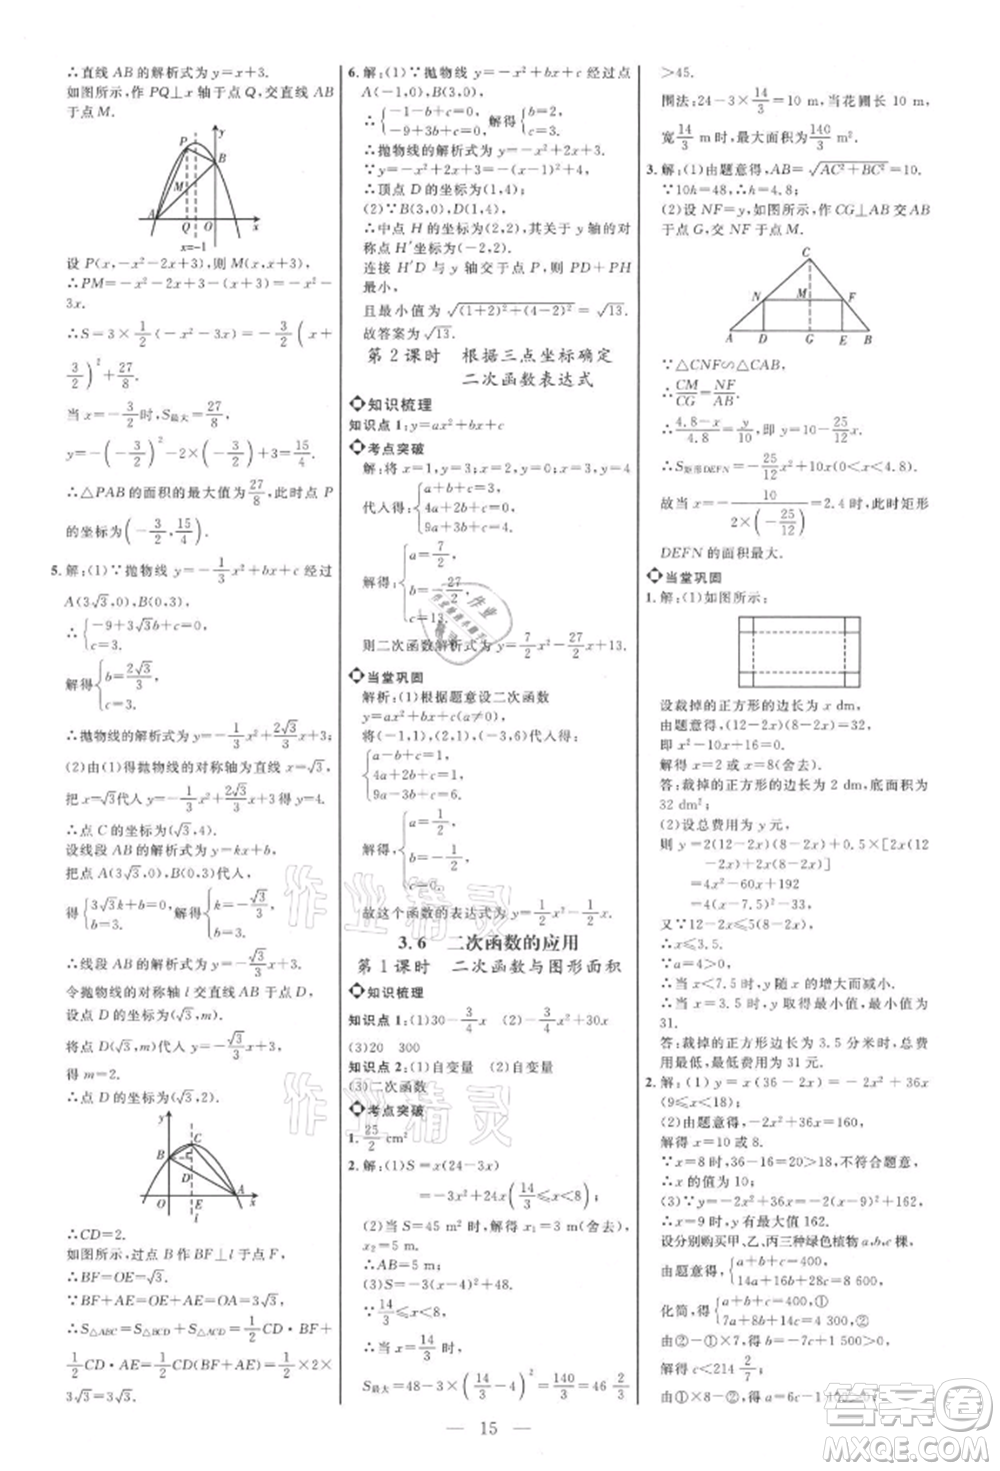 ∴直线 AB 的解析式为 y=x+3.
如图所示,作 PQ⊥x 轴于点 Q,交直线 AB
于点 M.
y
P
B
M
A
Q
O
x
x=-1
设 P(x,-x²-2x+3),则 M(x,x+3),
∴PM=-x²-2x+3-(x+3)=-x²-
3x.
∴S=3×1/2(-x²-3x)=-3/2(x+
3/2)²+27/8.
当 x=-3/2时,S最大=27/8,
y=-(-3/2)²-2×(-3/2)+3=15/4.
∴△PAB 的面积的最大值为27/8,此时点 P
的坐标为(-3/2,15/4).
5.解:(1)∵抛物线 y=-1/3x²+bx+c 经过
A(3√3,0),B(0,3),
∴{-9+3√3b+c=0,
c=3.
解得{b=2√3/3,
c=3.
∴抛物线的解析式为 y=-1/3x²+2√3/3x+3.
(2)由(1)得抛物线的对称轴为直线 x=√3.
把 x=√3代人 y=-1/3x²+2√3/3x+3得 y=4.
∴点 C 的坐标为(√3,4).
设线段 AB 的解析式为 y=kx+b,
把点 A(3√3,0),B(0,3)代人,
得{3√3k+b=0,解得{k=-√3/3,
b=3. b=3.
∴线段 AB 的解析式为 y=-√3/3x+3.
令抛物线的对称轴 l 与直线 AB 交于点 D,
设点 D 的坐标为(√3,m).
将点 D(√3,m)代人 y=-√3/3x+3,
得 m=2.
∴点 D 的坐标为(√3,2).
y
C
B
D
O
E
A
x
l
∴CD=2.
如图所示,过点 B 作 BF⊥l 于点 F,
∴BF=OE=√3.
∵BF+AE=OE+AE=OA=3√3,
∴S△ABC=S△BCD+S△ACD=1/2CD·BF+
1/2CD·AE=1/2CD(BF+AE)=1/2×2×
3√3=3√3.
6.解:(1)∵抛物线 y=-x²+bx+c 经过点
A(-1,0),B(0,3),
∴{-1-b+c=0,解得{b=2,
-9+3b+c=0. c=3.
∴抛物线的解析式为 y=-x²+2x+3.
∵y=-x²+2x+3=-(x-1)²+4,
∴顶点 D 的坐标为(1,4);
(2)∵B(0,3),D(1,4),
∴中点 H 的坐标为(2,2),其关于 y 轴的对
称点 H′坐标为(-2,2).
连接 H′D 与 y 轴交于点 P,则 PD+PH
最小,
且最小值为√(1+2)²+(4-2)²=√13.
故答案为√13.
第 2 课时 根据三点坐标确定
二次函数表达式
知识梳理
知识点 1:y=ax²+bx+c
考点突破
解:将 x=1,y=3;x=2,y=3;x=3,y=4
代人得:{a+b+c=3,
4a+2b+c=3,
9a+3b+c=4,
解得:{a=7/2,
b=-27/2,
c=13,
则二次函数解析式为 y=7/2x²-27/2x+13.
当堂巩固
解析:(1)根据题意设二次函数
y=ax²+bx+c(a≠0),
将(-1,1),(2,1),(-3,6)代人得:
{a-b+c=1,
4a+2b+c=1,
9a-3b+c=6,
解得:{a=1/2,
b=-1/2,
c=0,
故这个函数的表达式为 y=1/2x²-1/2x.
3.6 二次函数的应用
第 1 课时 二次函数与图形面积
知识梳理
知识点 1:(1)30-3/4x (2)-3/4x²+30x
(3)20 300
知识点 2:(1)自变量 (2)自变量
(3)二次函数
考点突破
1.25/2 cm²
2.解:(1)S=x(24-3x)
=-3x²+24x(14/3≤x<8);
(2)当 S=45 m²时,解得 x₁=3(舍去),
x₂=5.
∴AB=5;
(3)S=-3(x-4)²+48
∵14/3≤x<8,
∴当 x=14/3时,
S最大=48-3×(14/3-4)²=140/3=46 2/3
>45.
围法:24-3×14/3=10 m,当花圃长 10 m,
宽14/3 m时,最大面积为140/3 m².
3.解:(1)由题意得,AB=√AC²+BC²=10.
∵10h=48,∴h=4.8;
(2)设 NF=y,如图所示,作 CG⊥AB 交 AB
于点 G,交 NF 于点 M.
C
N
M
F
A
D
G
E
B
∵△CNF∽△CAB.
∴CM/CG=NF/AB.
∴(4.8-x)/4.8=y/10,即 y=10-25/12x.
∴S矩形DEFN=-25/12x²+10x(0<x<4.8).
故当 x=-10/(2×(-25/12))=2.4时,此时矩形
DEFN 的面积最大.
当堂巩固
1.解:(1)如图所示:
设裁掉的正方形的边长为 x dm,
由题意得,(12-2x)(8-2x)=32,
即 x²-10x+16=0.
解得 x=2 或 x=8(舍去).
答:裁掉的正方形的边长为 2 dm,底面积为
32 dm²;
(2)设总费用为 y 元,
则 y=2(12-2x)(8-2x)+0.5×[2x(12-
2x)+2x(8-2x)]
=4x²-60x+192
=4(x-7.5)²-33,
又∵12-2x≤5(8-2x),
∴x≤3.5.
∵a=4>0,
∴当 x<7.5时,y 随 x 的增大而减小,
∴当 x=3.5时,y 取得最小值,最小值为
31.
答:裁掉的正方形的边长为 3.5 分米时,总
费用最低,最低为 31 元.
2.解:(1) y=x(36-2x)=-2x²+36x
(9≤x<18);
(2)由题意得,-2x²+36x=160,
解得 x=10 或 8.
∵x=8时,36-16=20>18,不符合题意,
∴x 的值为 10;
(3)∵y=-2x²+36x=-2(x-9)²+162,
∴x=9时,y 有最大值 162.
设分别购买甲、乙、丙三种绿色植物 a,b,c 棵,
由题意得{a+b+c=400,
14a+16b+28c=8 600,
化简,得{a+b+c=400,①
7a+8b+14c=4 300,②
由②-①×7,得 b+7c=1 500,
解得 c<214 2/7.
由①×8-②,得 a=6c-1 100>0,
— 15 —
作业精灵
作业精灵
答案圈
MXQE.COM